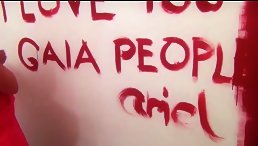 I LOVE YOU
GAIA PEOPLE
ariel